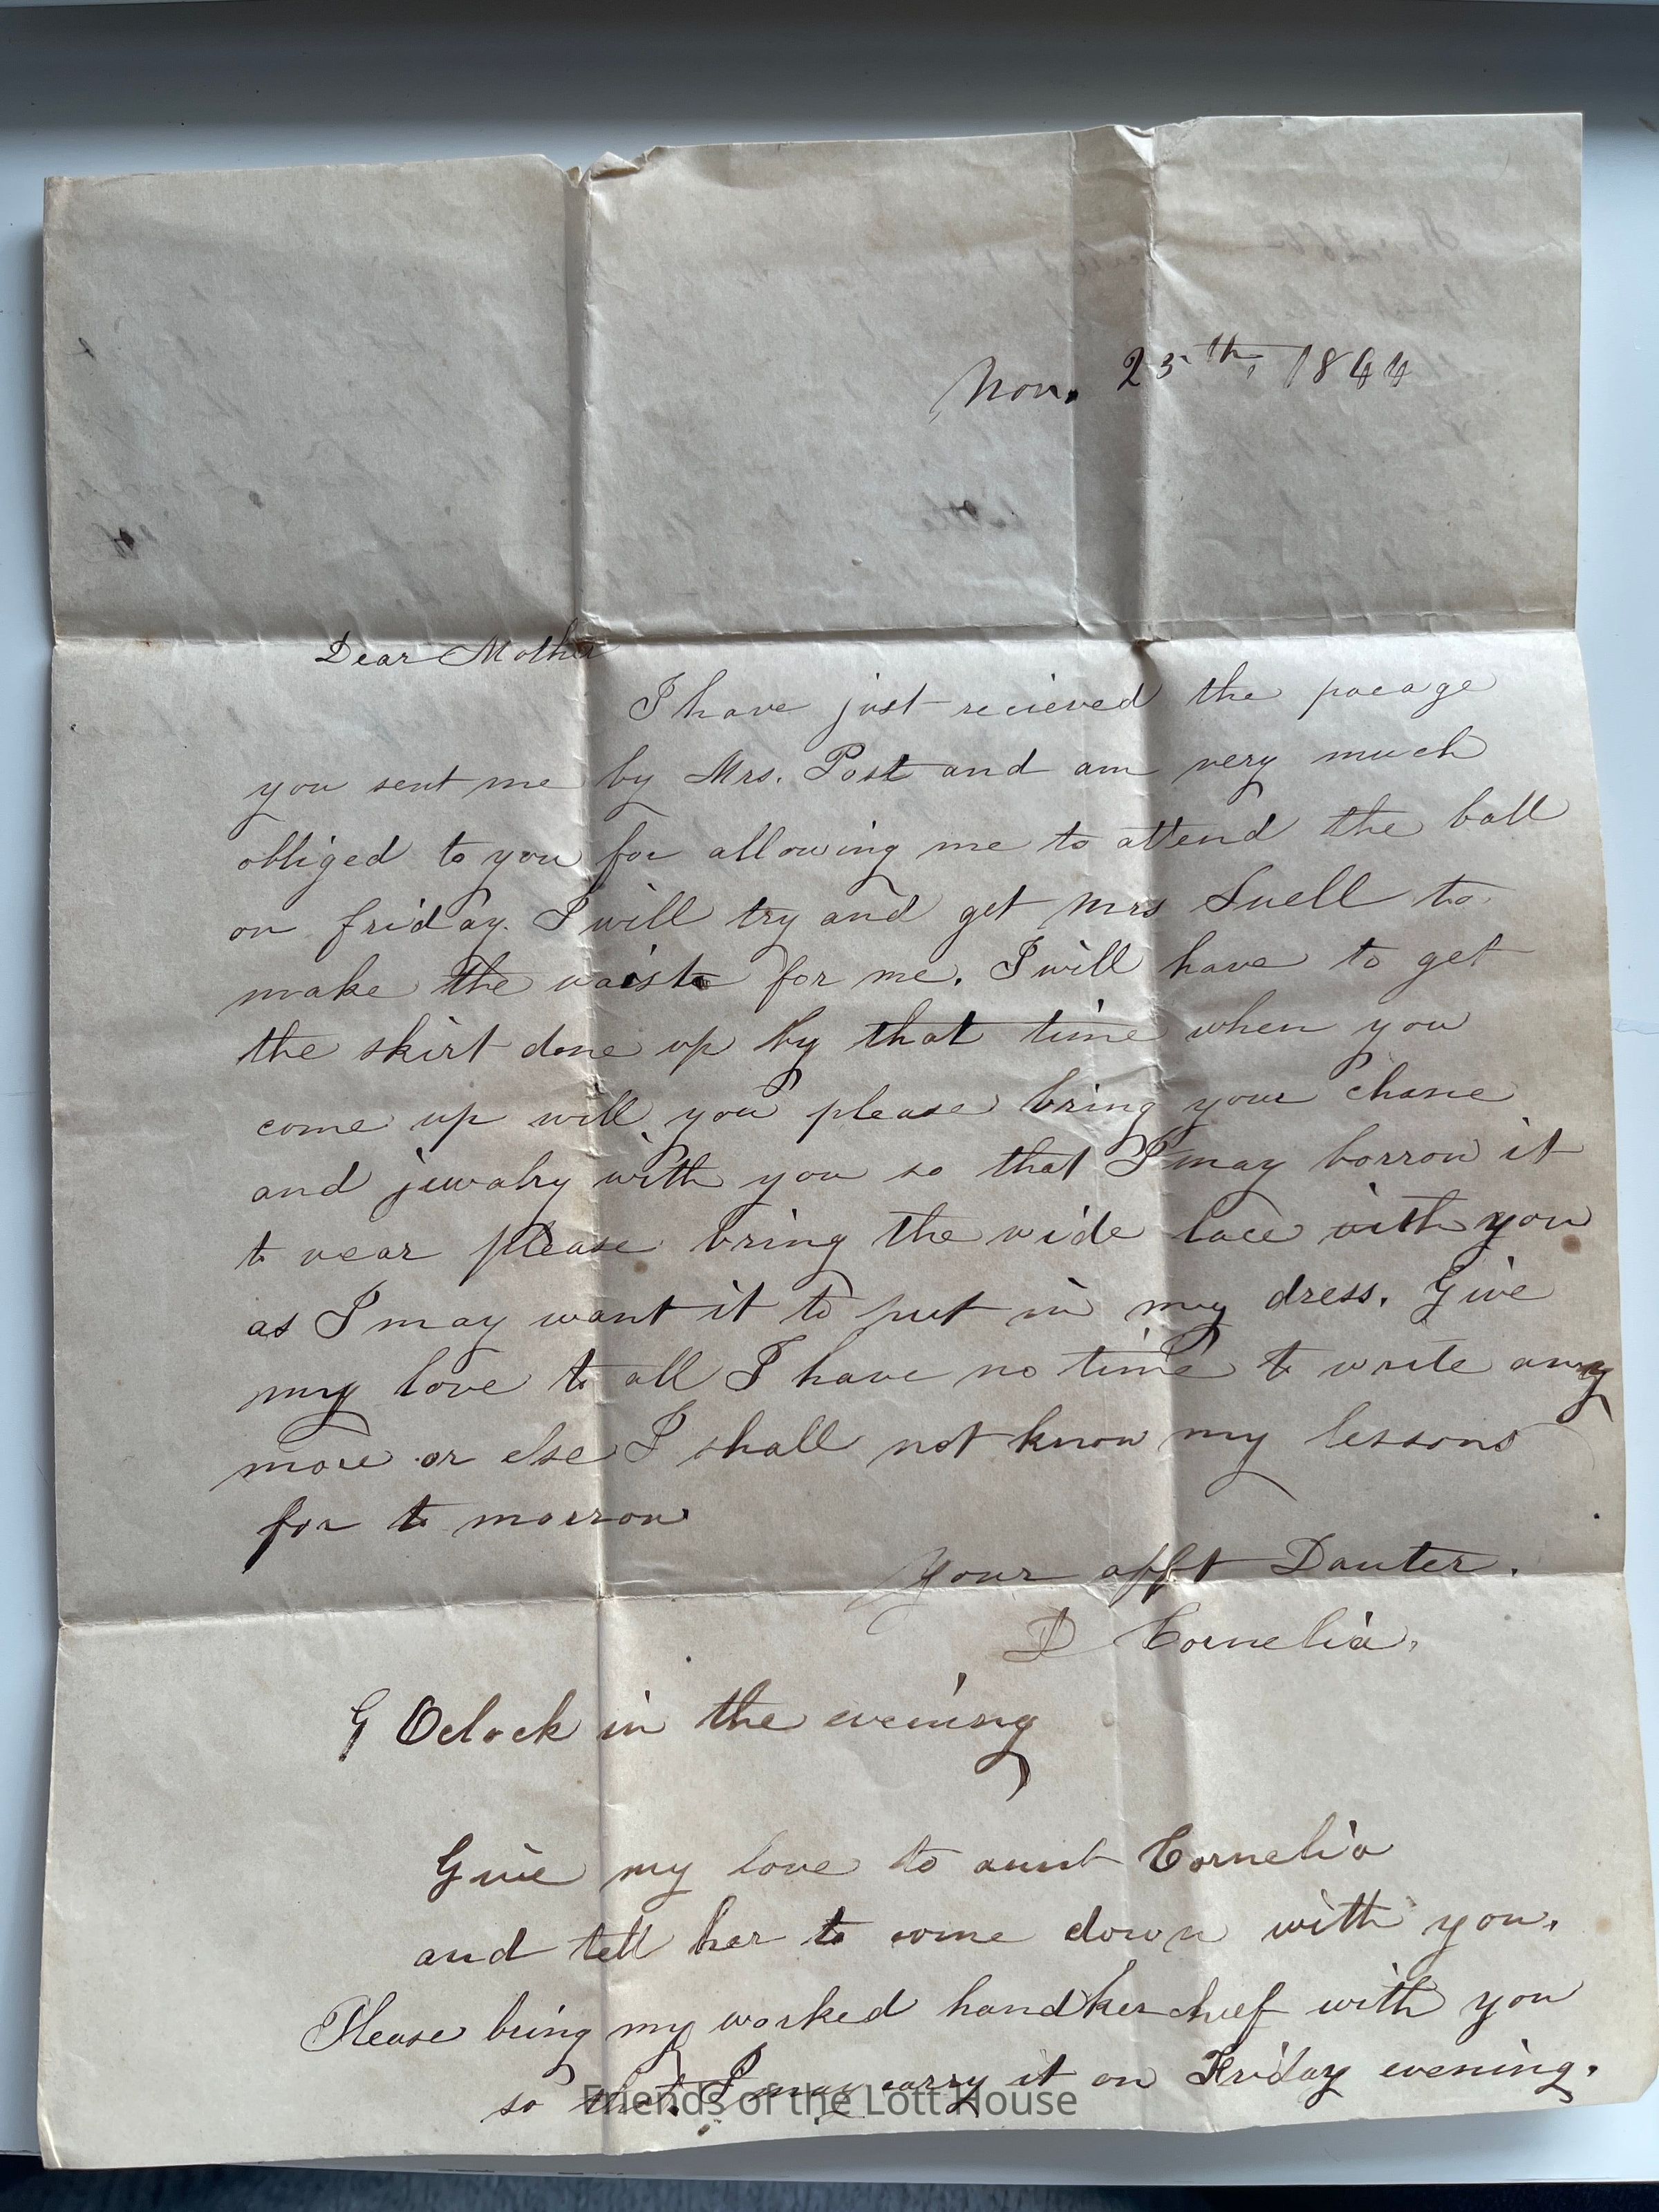 Nov. 25th, 1844
Dear Mother
I have just recieved the pacage
you sent me by Mrs. Post and am very much
obliged to you for allowing me to attend the ball
on friday. I will try and get Mrs Suell to
make the waist for me. I will have to get
the skirt done up by that time when you
come up will you please bring your chane
and jewalry with you so that I may borrow it
to wear please bring the wide lace with you
as I may want it to put in my dress. Give
my love to all I have no time to write any
more or else I shall not know my lessons
for to morrow
Your afft Dauter.
D Cornelia,
9 Oclock in the evening
Give my love to aunt Cornelia
and tell her to come down with you.
Please bring my worked handkerchief with you
so that I may carry it on Friday evening.
Friends of the Lott House